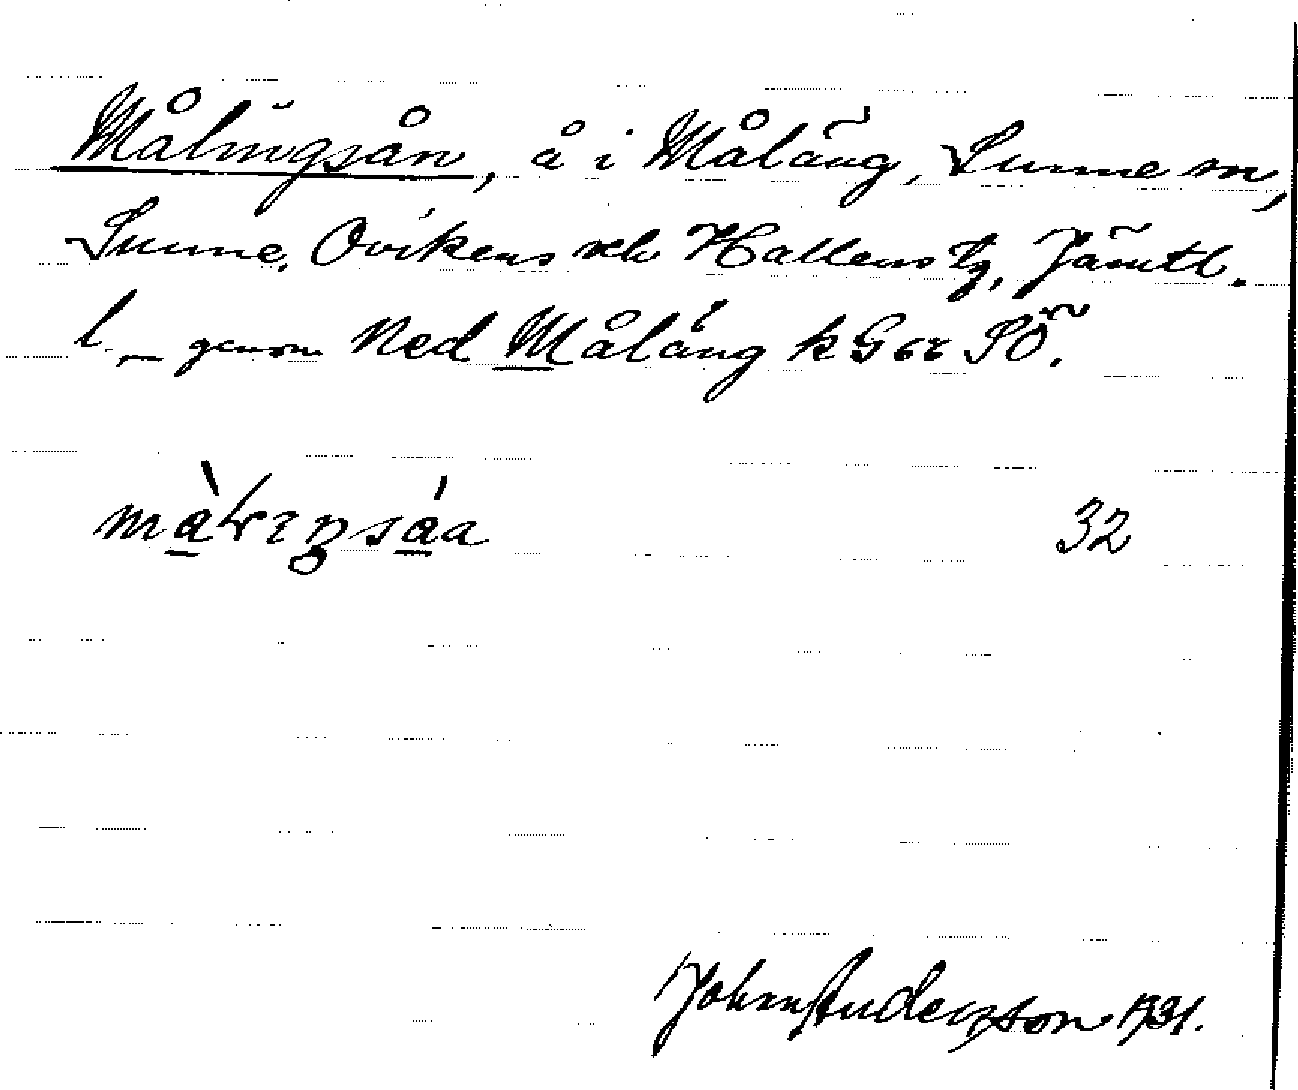 Målingsån, å i Måläng, Sunne sn,
Sunne, Ovikens och Hallens tg, Jämtl.
l. — genom Ned Måläng k G
32
John Anderzson 1931.